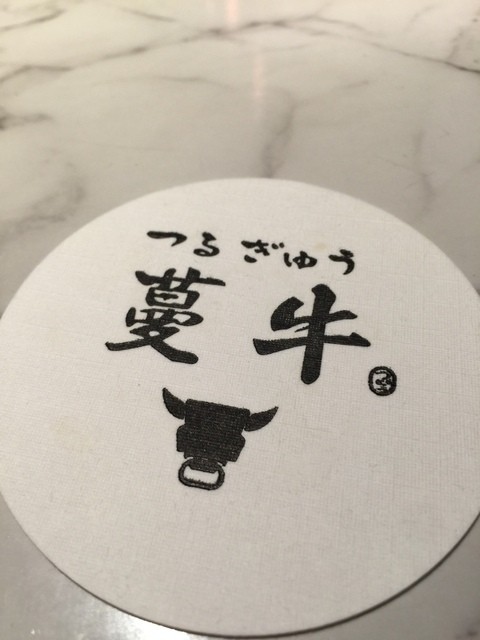 つるぎゅう
蔓牛